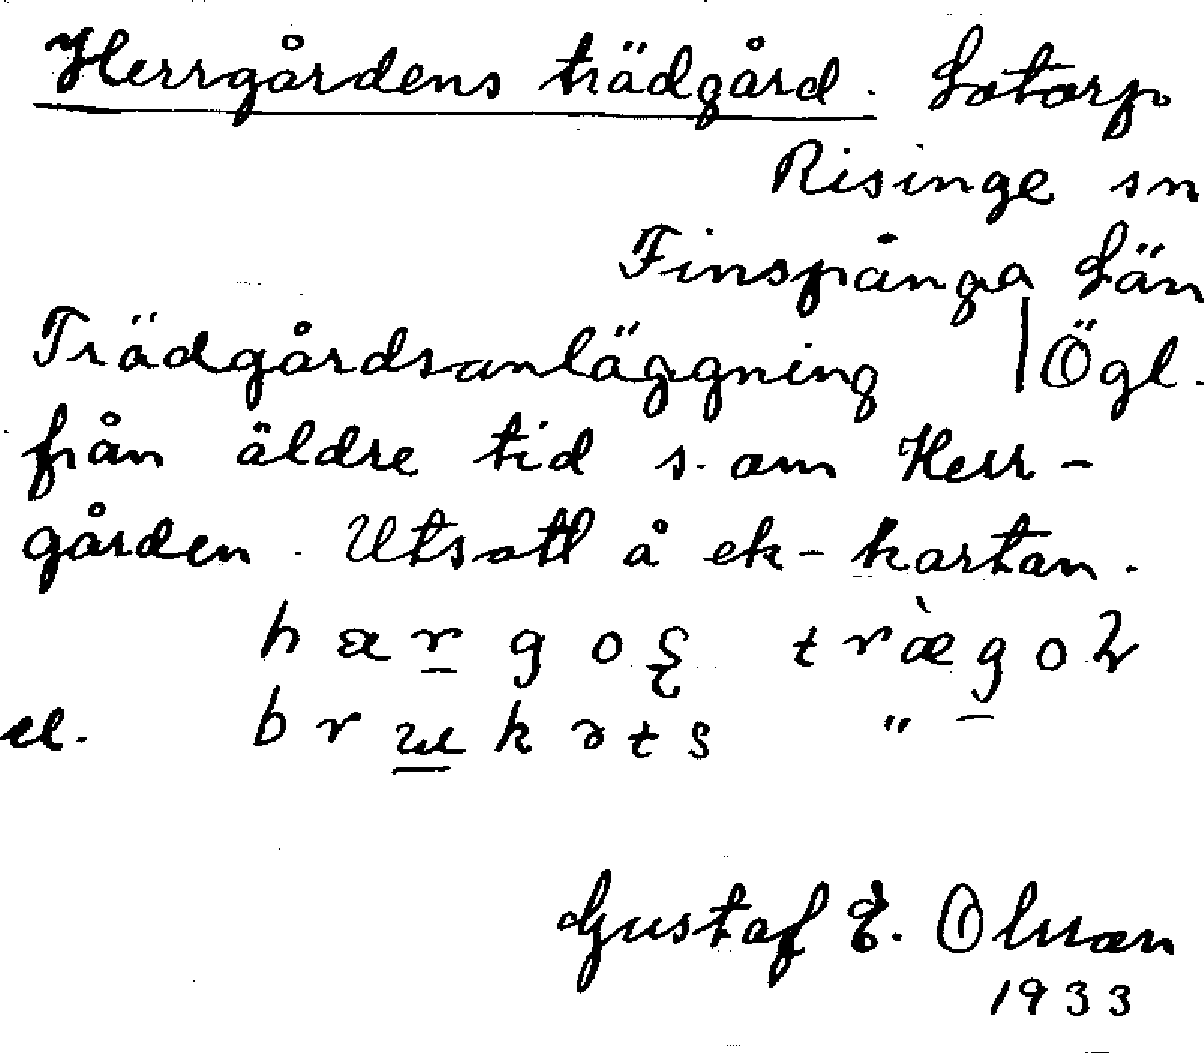 Herrgårdens trädgård. Lotorp
Risinge sn
Finspånga Län
Trädgårdsanläggning | Ögl.
från äldre tid s. om Herr-
gården. Utsatt å ek-kartan.
el.
"
Gustaf E. Olsson
1933